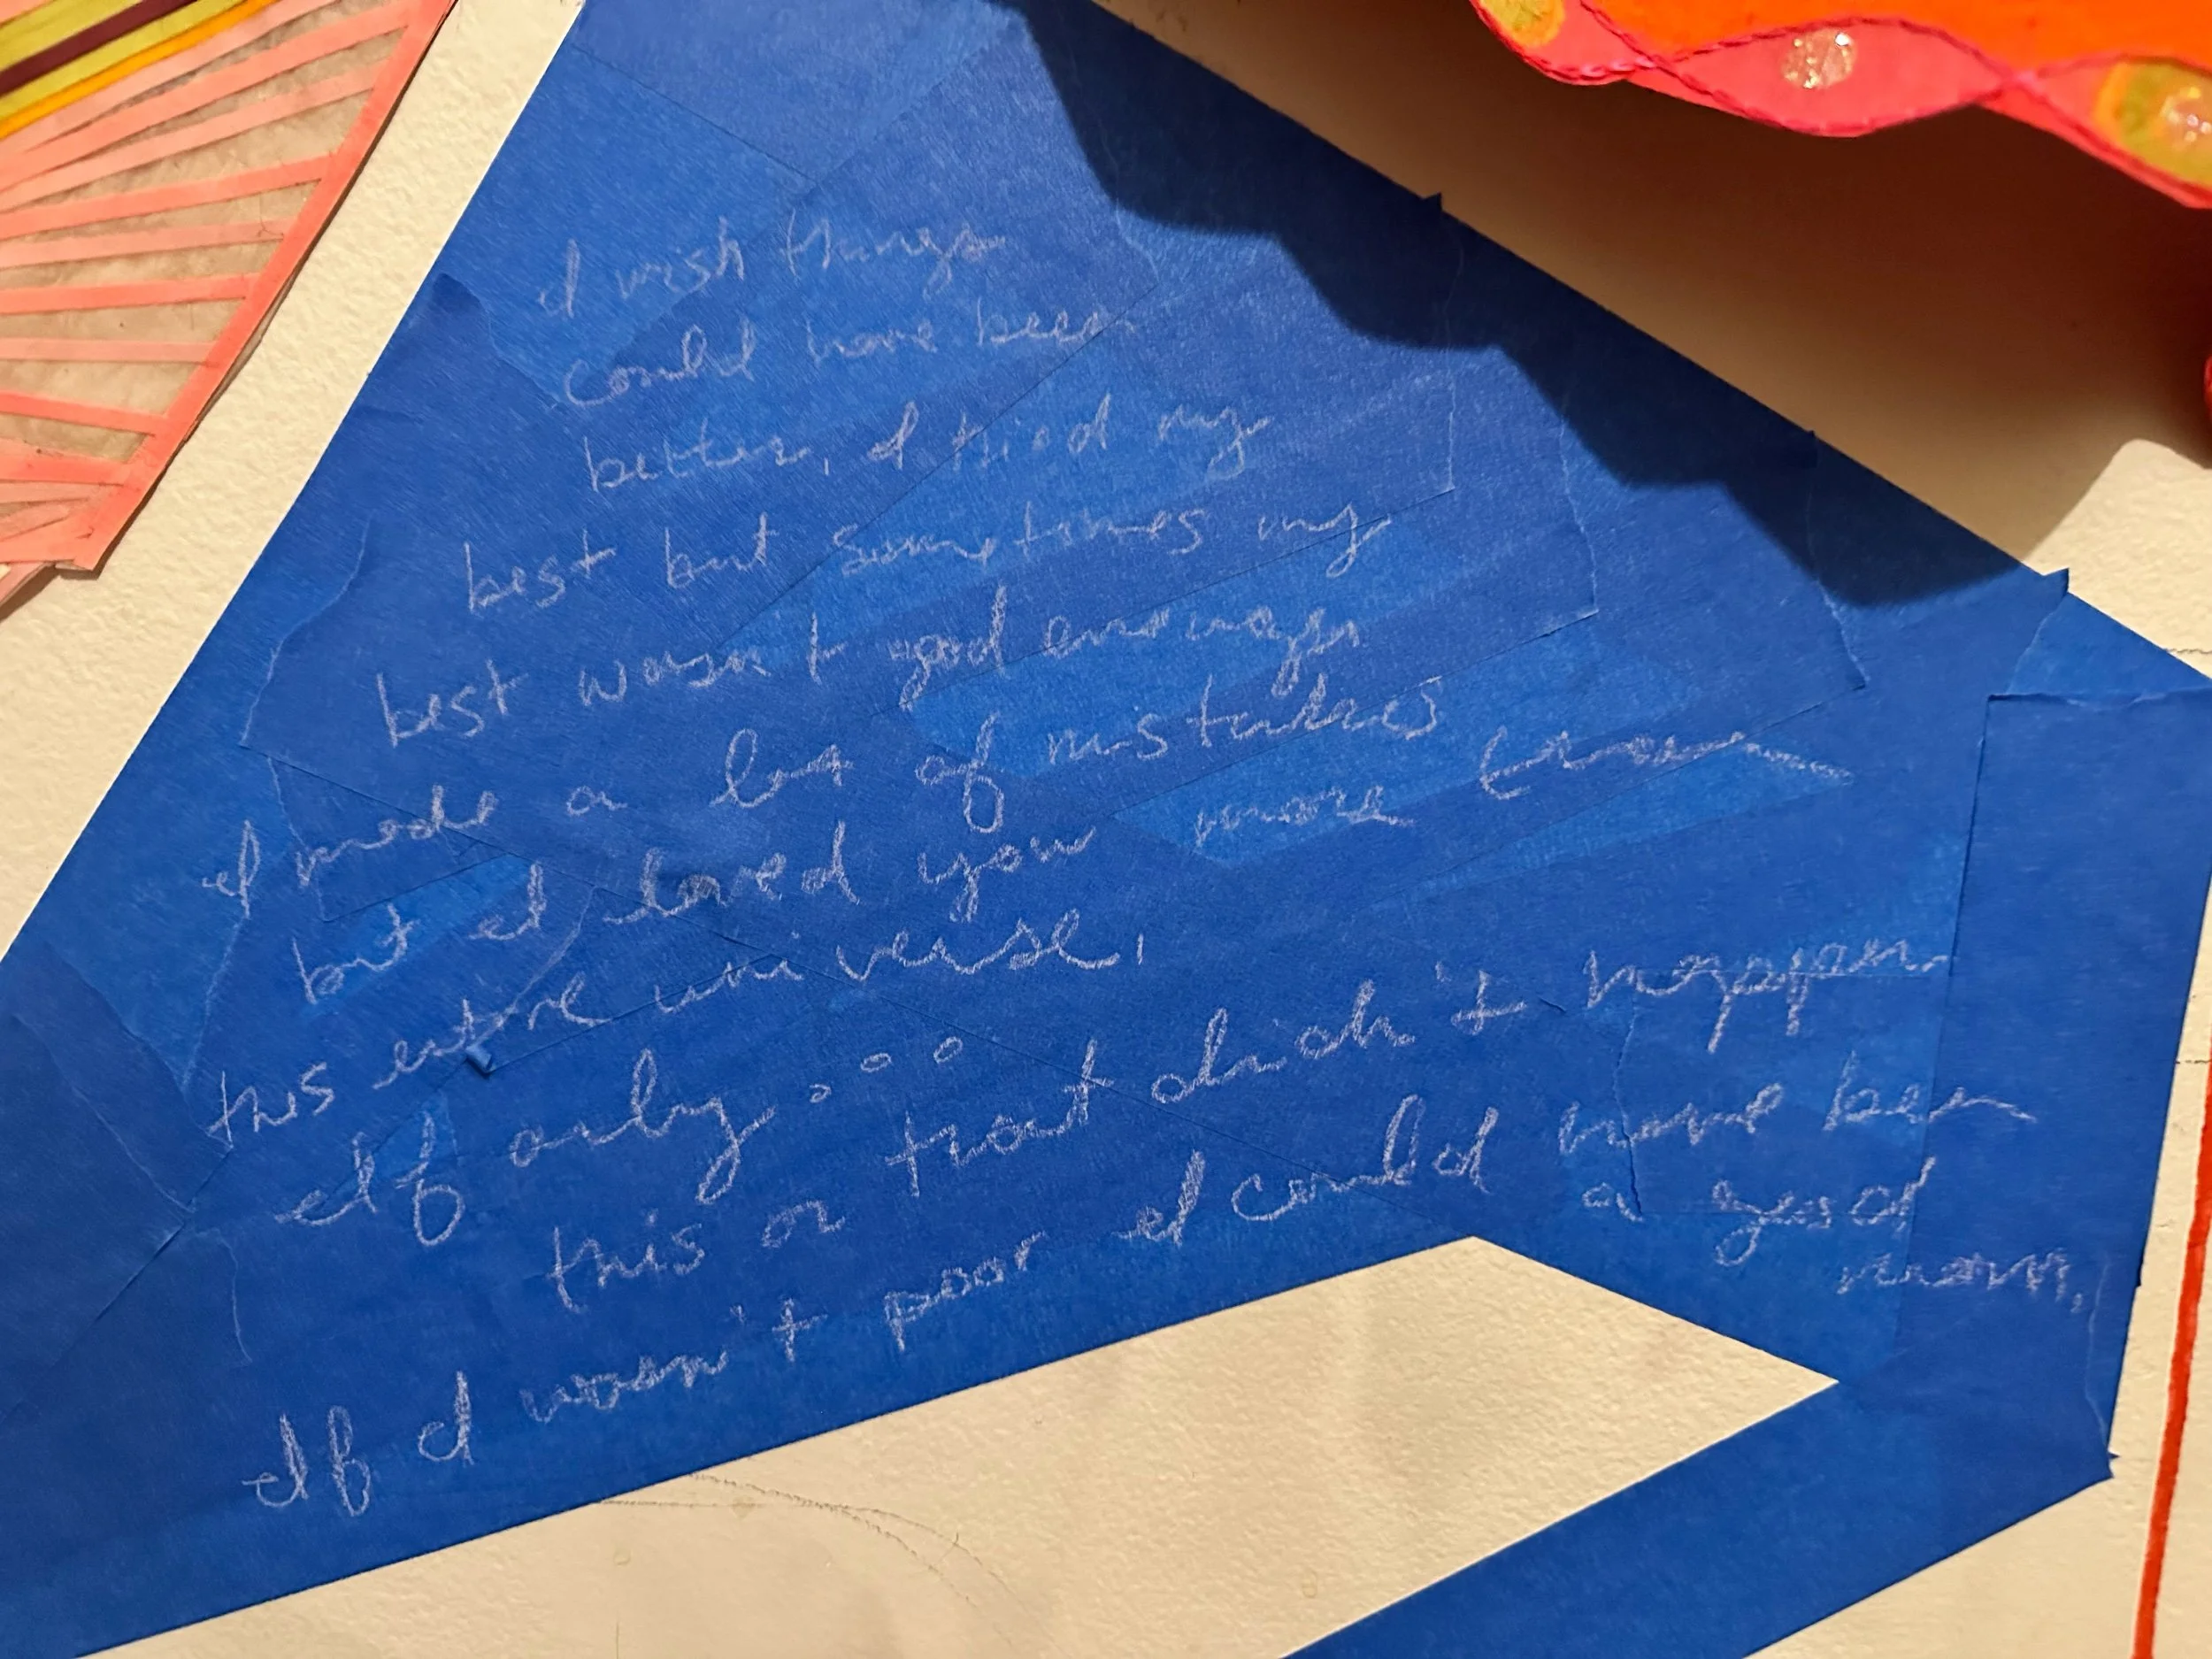 I wish things
could have been
better, I tried my
best but sometimes my
best wasn't good enough
I made a lot of mistakes
but I loved you more than
this entire universe,
If only...
this or that didn't happen.
If I wasn't poor I could have been
a good
mom.